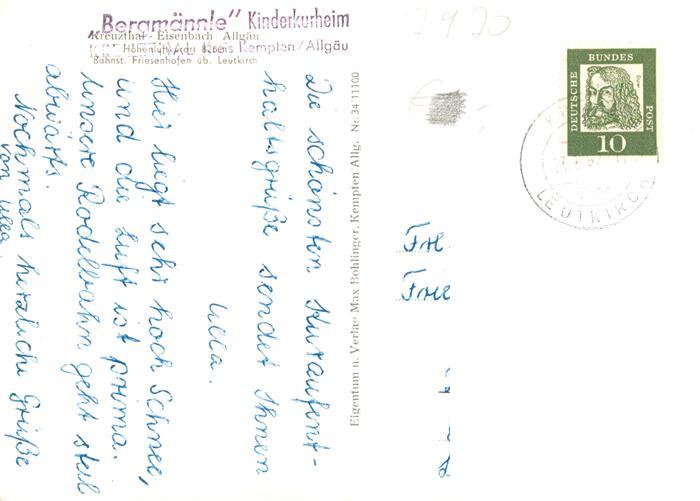 „Bergmännle" Kinderkurheim
Kreuzthal - Eisenbach Allgäu
Kreis Kempten/Allgäu
Bahnst. Friesenhofen üb. Leutkirch
Die schönsten Kuraufent-
haltsgrüße sendet Ihnen
Ulla.
Hier liegt sehr hoch Schnee,
und die Luft ist prima.
Unsere Rodelbahn geht steil
abwärts.
Nochmals herzliche Grüße
von Ulla
Eigentum u. Verlag Max Bohlinger, Kempten Allg. Nr. 34 11100
DEUTSCHE BUNDES POST
10
LEUTKIRCH
Frl
Frie